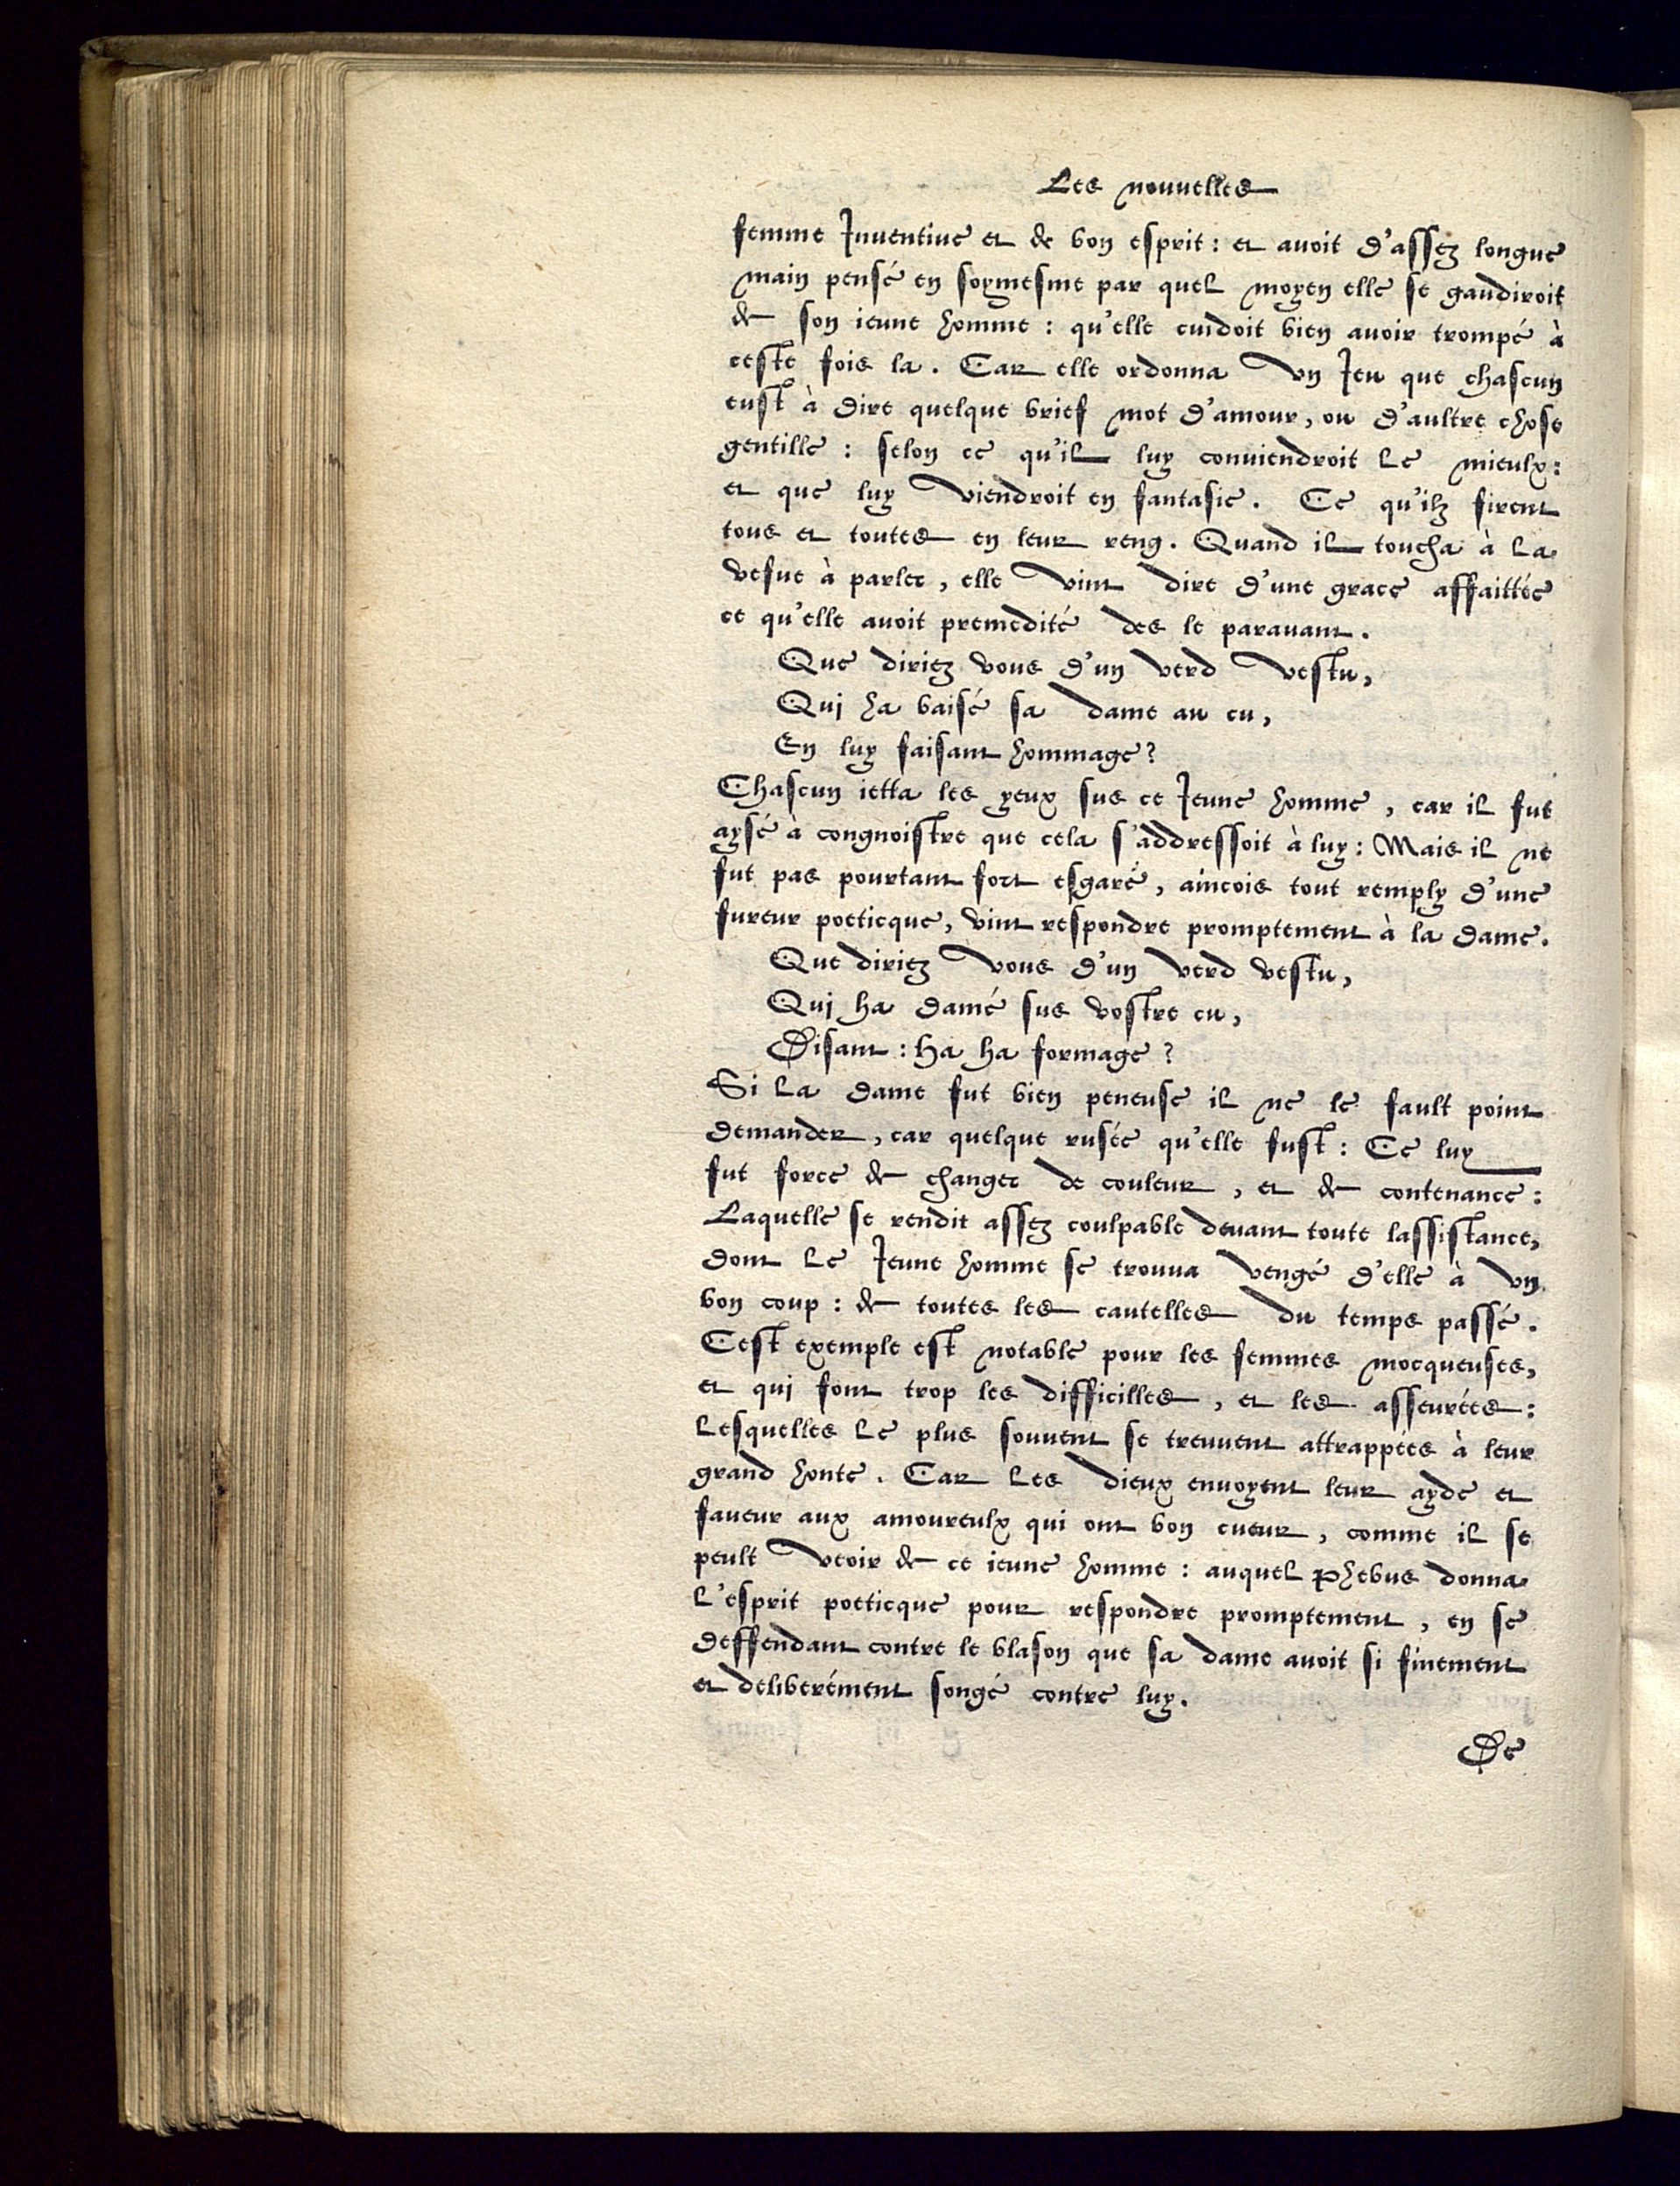 Les nouuelles
femme Inuentiue et de bon esprit : et auoit d'assez longue
main pensé en soymesme par quel moyen elle se gaudiroit
de son ieune homme : qu'elle cuidoit bien auoir trompé à
ceste fois la. Car elle ordonna vn Ieu que chascun
eust à dire quelque brief mot d'amour, ou d'aultre chose
gentille : selon ce qu'il luy conuiendroit le mieulx :
et que luy viendroit en fantasie. Ce qu'ilz firent
tous et toutes en leur reng. Quand il toucha à la
vefue à parler, elle vint dire d'une grace affaittée
ce qu'elle auoit premedité des le parauant.
Que diriez vous d'un verd vestu,
Qui ha baisé sa dame au cu,
En luy faisant hommage ?
Chascun ietta les yeux sus ce Ieune homme, car il fut
aysé à congnoistre que cela s'addressoit à luy : Mais il ne
fut pas pourtant fort esgaré, aincois tout remply d'une
fureur poeticque, vint respondre promptement à la dame.
Que diriez vous d'un verd vestu,
Qui ha damé sus vostre cu,
Disant : ha ha formage ?
Si la dame fut bien peneuse il ne le fault point
demander, car quelque rusée qu'elle fust : Ce luy
fut force de changer de couleur, et de contenance :
Laquelle se rendit assez coulpable deuant toute lassistance,
dont le Ieune homme se trouua vengé d'elle à vn
bon coup : de toutes les cautelles du temps passé.
Cest exemple est notable pour les femmes mocqueuses,
et qui font trop les difficilles, et les asseurées :
lesquelles le plus souuent se treuuent attrappées à leur
grand honte. Car les dieux enuoyent leur ayde et
faueur aux amoureulx qui ont bon cueur, comme il se
peult veoir de ce ieune homme : auquel Phebus donna
l'esprit poeticque pour respondre promptement, en se
deffendant contre le blason que sa dame auoit si finement
et deliberément songé contre luy.
De